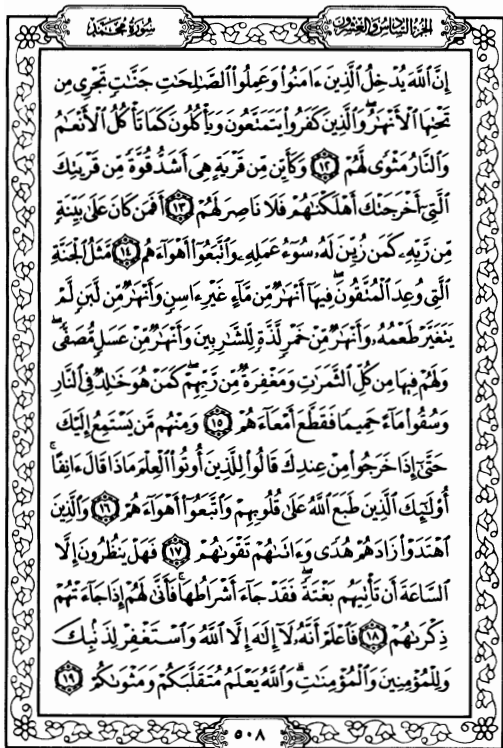 سورة محمد
الجزء السادس والعشرون
إِنَّ ٱللَّهَ يُدۡخِلُ ٱلَّذِينَ ءَامَنُواْ وَعَمِلُواْ ٱلصَّٰلِحَٰتِ جَنَّٰتٖ تَجۡرِي مِن
تَحۡتِهَا ٱلۡأَنۡهَٰرُۖ وَٱلَّذِينَ كَفَرُواْ يَتَمَتَّعُونَ وَيَأۡكُلُونَ كَمَا تَأۡكُلُ ٱلۡأَنۡعَٰمُ
وَٱلنَّارُ مَثۡوٗى لَّهُمۡ ١٢ وَكَأَيِّن مِّن قَرۡيَةٍ هِيَ أَشَدُّ قُوَّةٗ مِّن قَرۡيَتِكَ
ٱلَّتِيٓ أَخۡرَجَتۡكَ أَهۡلَكۡنَٰهُمۡ فَلَا نَاصِرَ لَهُمۡ ١٣ أَفَمَن كَانَ عَلَىٰ بَيِّنَةٖ
مِّن رَّبِّهِۦ كَمَن زُيِّنَ لَهُۥ سُوٓءُ عَمَلِهِۦ وَٱتَّبَعُوٓاْ أَهۡوَآءَهُم ١٤ مَّثَلُ ٱلۡجَنَّةِ
ٱلَّتِي وُعِدَ ٱلۡمُتَّقُونَۖ فِيهَآ أَنۡهَٰرٞ مِّن مَّآءٍ غَيۡرِ ءَاسِنٖ وَأَنۡهَٰرٞ مِّن لَّبَنٖ لَّمۡ
يَتَغَيَّرۡ طَعۡمُهُۥ وَأَنۡهَٰرٞ مِّنۡ خَمۡرٖ لَّذَّةٖ لِّلشَّٰرِبِينَ وَأَنۡهَٰرٞ مِّنۡ عَسَلٖ مُّصَفّٗىۖ
وَلَهُمۡ فِيهَا مِن كُلِّ ٱلثَّمَرَٰتِ وَمَغۡفِرَةٞ مِّن رَّبِّهِمۡۖ كَمَنۡ هُوَ خَٰلِدٞ فِي ٱلنَّارِ
وَسُقُواْ مَآءً حَمِيمٗا فَقَطَّعَ أَمۡعَآءَهُمۡ ١٥ وَمِنۡهُم مَّن يَسۡتَمِعُ إِلَيۡكَ
حَتَّىٰٓ إِذَا خَرَجُواْ مِنۡ عِندِكَ قَالُواْ لِلَّذِينَ أُوتُواْ ٱلۡعِلۡمَ مَاذَا قَالَ ءَانِفًاۚ
أُوْلَٰٓئِكَ ٱلَّذِينَ طَبَعَ ٱللَّهُ عَلَىٰ قُلُوبِهِمۡ وَٱتَّبَعُوٓاْ أَهۡوَآءَهُمۡ ١٦ وَٱلَّذِينَ
ٱهۡتَدَوۡاْ زَادَهُمۡ هُدٗى وَءَاتَىٰهُمۡ تَقۡوَىٰهُمۡ ١٧ فَهَلۡ يَنظُرُونَ إِلَّا
ٱلسَّاعَةَ أَن تَأۡتِيَهُم بَغۡتَةٗۖ فَقَدۡ جَآءَ أَشۡرَاطُهَاۚ فَأَنَّىٰ لَهُمۡ إِذَا جَآءَتۡهُمۡ
ذِكۡرَىٰهُمۡ ١٨ فَٱعۡلَمۡ أَنَّهُۥ لَآ إِلَٰهَ إِلَّا ٱللَّهُ وَٱسۡتَغۡفِرۡ لِذَنۢبِكَ
وَلِلۡمُؤۡمِنِينَ وَٱلۡمُؤۡمِنَٰتِۗ وَٱللَّهُ يَعۡلَمُ مُتَقَلَّبَكُمۡ وَمَثۡوَىٰكُمۡ ١٩
٥٠٨